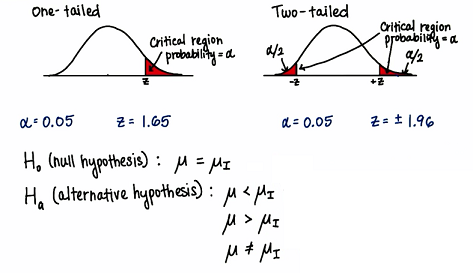 One-tailed
Critical region
probability = α
z
α = 0.05 z = 1.65
Two-tailed
Critical region
probability = α
α/2
α/2
-z +z
α = 0.05 z = ± 1.96
H₀ (null hypothesis) : μ = μ_I
Hₐ (alternative hypothesis) : μ < μ_I
μ > μ_I
μ ≠ μ_I